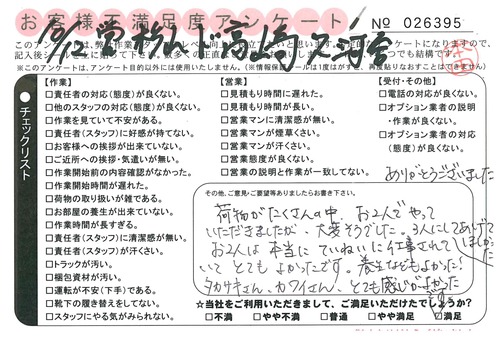 お客様不満足度アンケート
№ 026395
【作業】
□責任者の対応(態度)が良くない。
□他のスタッフの対応(態度)が良くない。
□作業を見ていて不安がある。
□責任者(スタッフ)に好感が持てない。
□お客様への挨拶が出来ていない。
□ご近所への挨拶・気遣いが無い。
□作業開始前の内容確認がなかった。
□作業開始時間が遅れた。
□荷物の取り扱いが雑である。
□お部屋の養生が出来ていない。
□作業時間が長すぎる。
□責任者(スタッフ)に清潔感が無い。
□責任者(スタッフ)が汗くさい。
□トラックが汚い。
□梱包資材が汚い。
□運転が不安(下手)である。
□靴下の履き替えをしてない。
□スタッフにやる気がみられない。
【営業】
□見積もり時間に遅れた。
□見積もり時間が長い。
□営業マンに清潔感が無い。
□営業マンが煙草くさい。
□営業マンが汗くさい。
□営業態度が良くない。
□営業の説明と作業が一致してない。
【受付・その他】
□電話の対応が良くない。
□オプション業者の説明
・作業が良くない。
□オプション業者の対応
(態度)が良くない。
ありがとうございました
チェックリスト
その他、ご意見・ご要望等ありましたらお書き下さい。
荷物がたくさんの中、お2人でやって
いただきましたが、大変そうでした。3人にしてあげて
お2人は本当にていねいに仕事されて
いて とてもよかったです。養生などもよかった!
タカサキさん、カワイさん、とても感じがよかった
です。
★当社をご利用いただきまして、ご満足いただけたでしょうか?
□不満 □やや不満 □普通 □やや満足 ☑満足